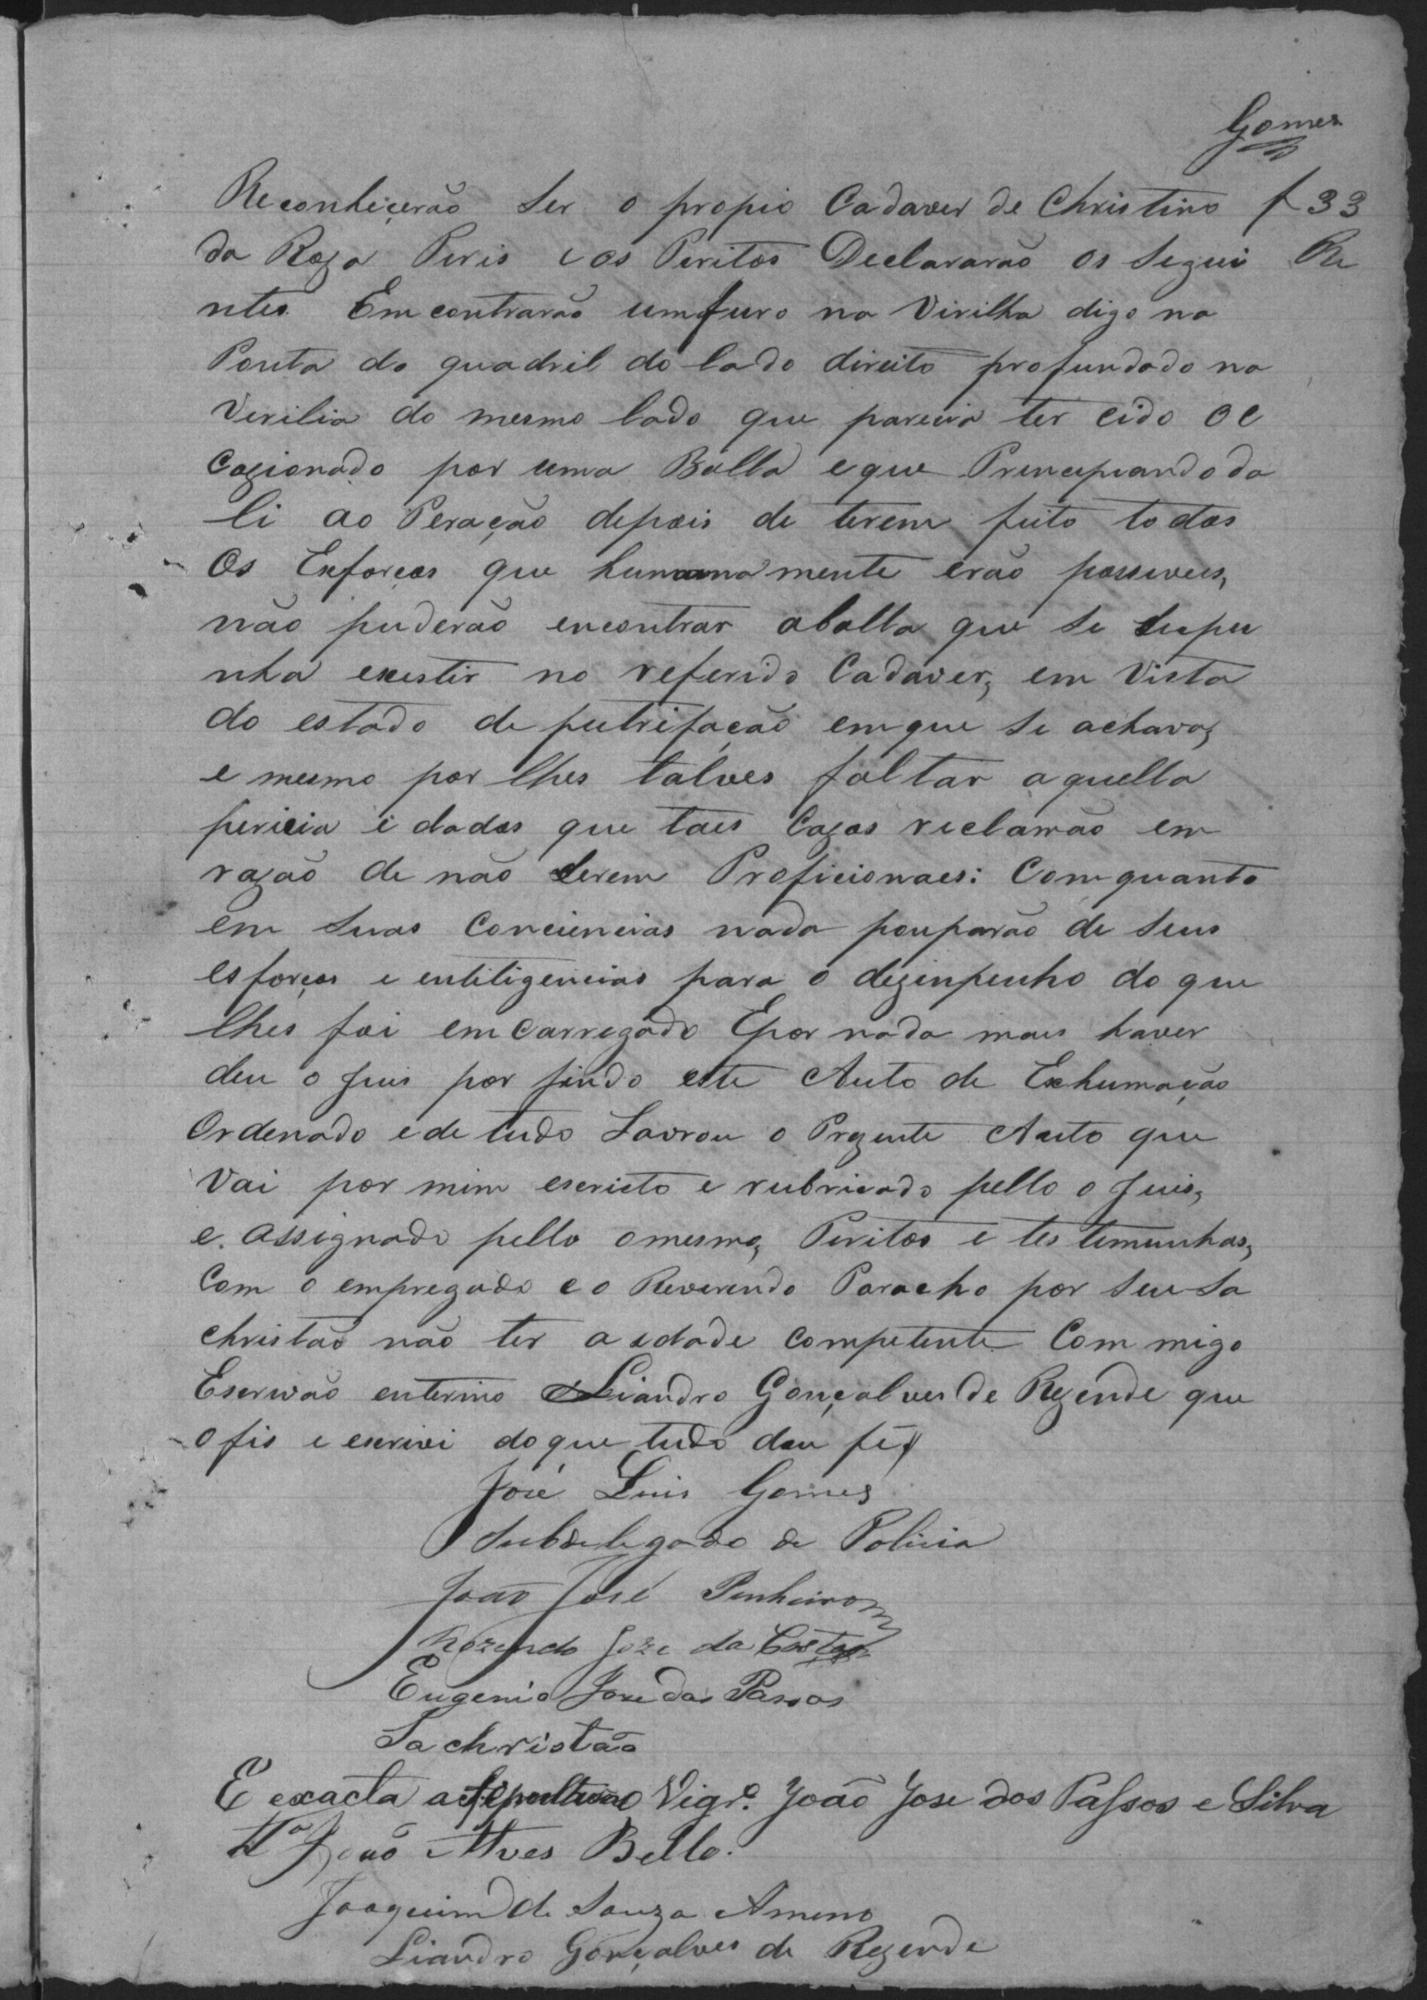 Gomes
Reconheçerão ser o propio Cadaver de Christino f 33
da Roza Peris e os Peritos Declararão os segui Re
ntes Emcontrarão umfuro na Virilha digo na
Ponta do quadril do lado direito profundado na
Verilia do mesmo lado que pareçia ter cido oc
cazionado por uma Balla e que Prencipiando da
li ao Peração depois de terem feito todos
Os Exforços que humanamente erão possiveis,
não puderão encontrar aballa que se supu
nha exestir no referido Cadaver, em Vista
do estado de putrifação emque se achava,
e mesmo por lhes talves faltar aquella
pericia e dados que taes Cazos reclamão em
razão de não serem Proficionaes: Comquanto
em suas Conciencias nada pouparão de seus
esforços e entiligencias para o dezinpenho do que
lhes foi emcarregado Epor nada mais haver
deu o Juis por findo este Auto de Exhumação
Ordenado e de tudo Lavrou o Prezente Auto que
Vai por mim escricto e rubricado pello o Juis,
e assignado pello omesmo, Peritos e testemunhas,
Com o empregado e o Reverendo Parocho por seu Sa
christão não ter a edade competente Commigo
Escrivão enterino Liandro Gonçalves de Rezende que
o fis e escrivi do que tudo dou fé
José Luis Gomes
Subdelegado de Policia
João José Pinheiro
Rozendo Joze da Costa
Eugenio Joze dos Passos
Sachristão
E exacta a sepultura o Vigr.o João Jose dos Passos e Silva
T.a João Alves Bello.
Joaquim de Souza Ameno
Liandro Gonçalves de Rezende